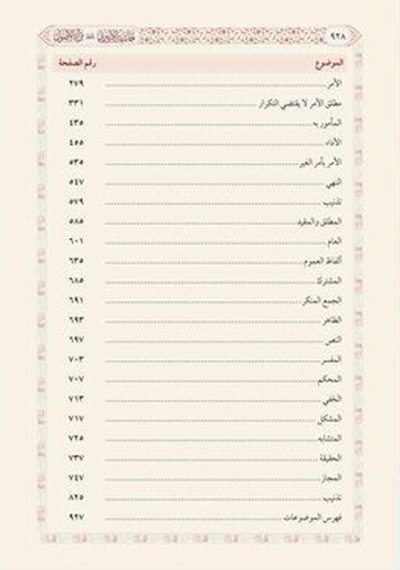 ٩٢٨
الموضوع رقم الصفحة
الأمر ٢٧٩
مطلق الأمر لا يقتضي التكرار ٣٣١
المأمور به ٤٣٥
الأداء ٤٥٥
الأمر بأمر الغير ٥٣٥
النهي ٥٤٧
تذنيب ٥٧٩
المطلق والمقيد ٥٨٥
العام ٦٠١
ألفاظ العموم ٦٣٥
المشترك ٦٨٥
الجمع المنكر ٦٩١
الظاهر ٦٩٣
النص ٦٩٧
المفسر ٧٠٣
المحكم ٧٠٧
الخفي ٧١٣
المشكل ٧١٧
المتشابه ٧٢٥
الحقيقة ٧٣٧
المجاز ٧٤٧
تذنيب ٨٢٥
فهرس الموضوعات ٩٢٧